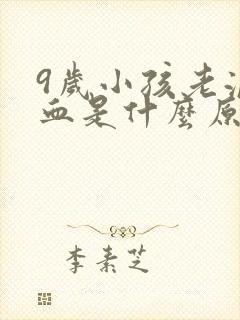 9歲小孩老流
血是什麼原
李素芝